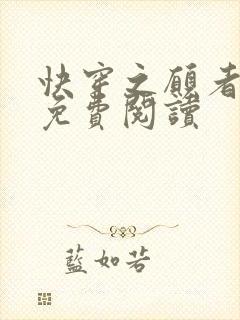 快穿之願者
免費閱讀
藍如若